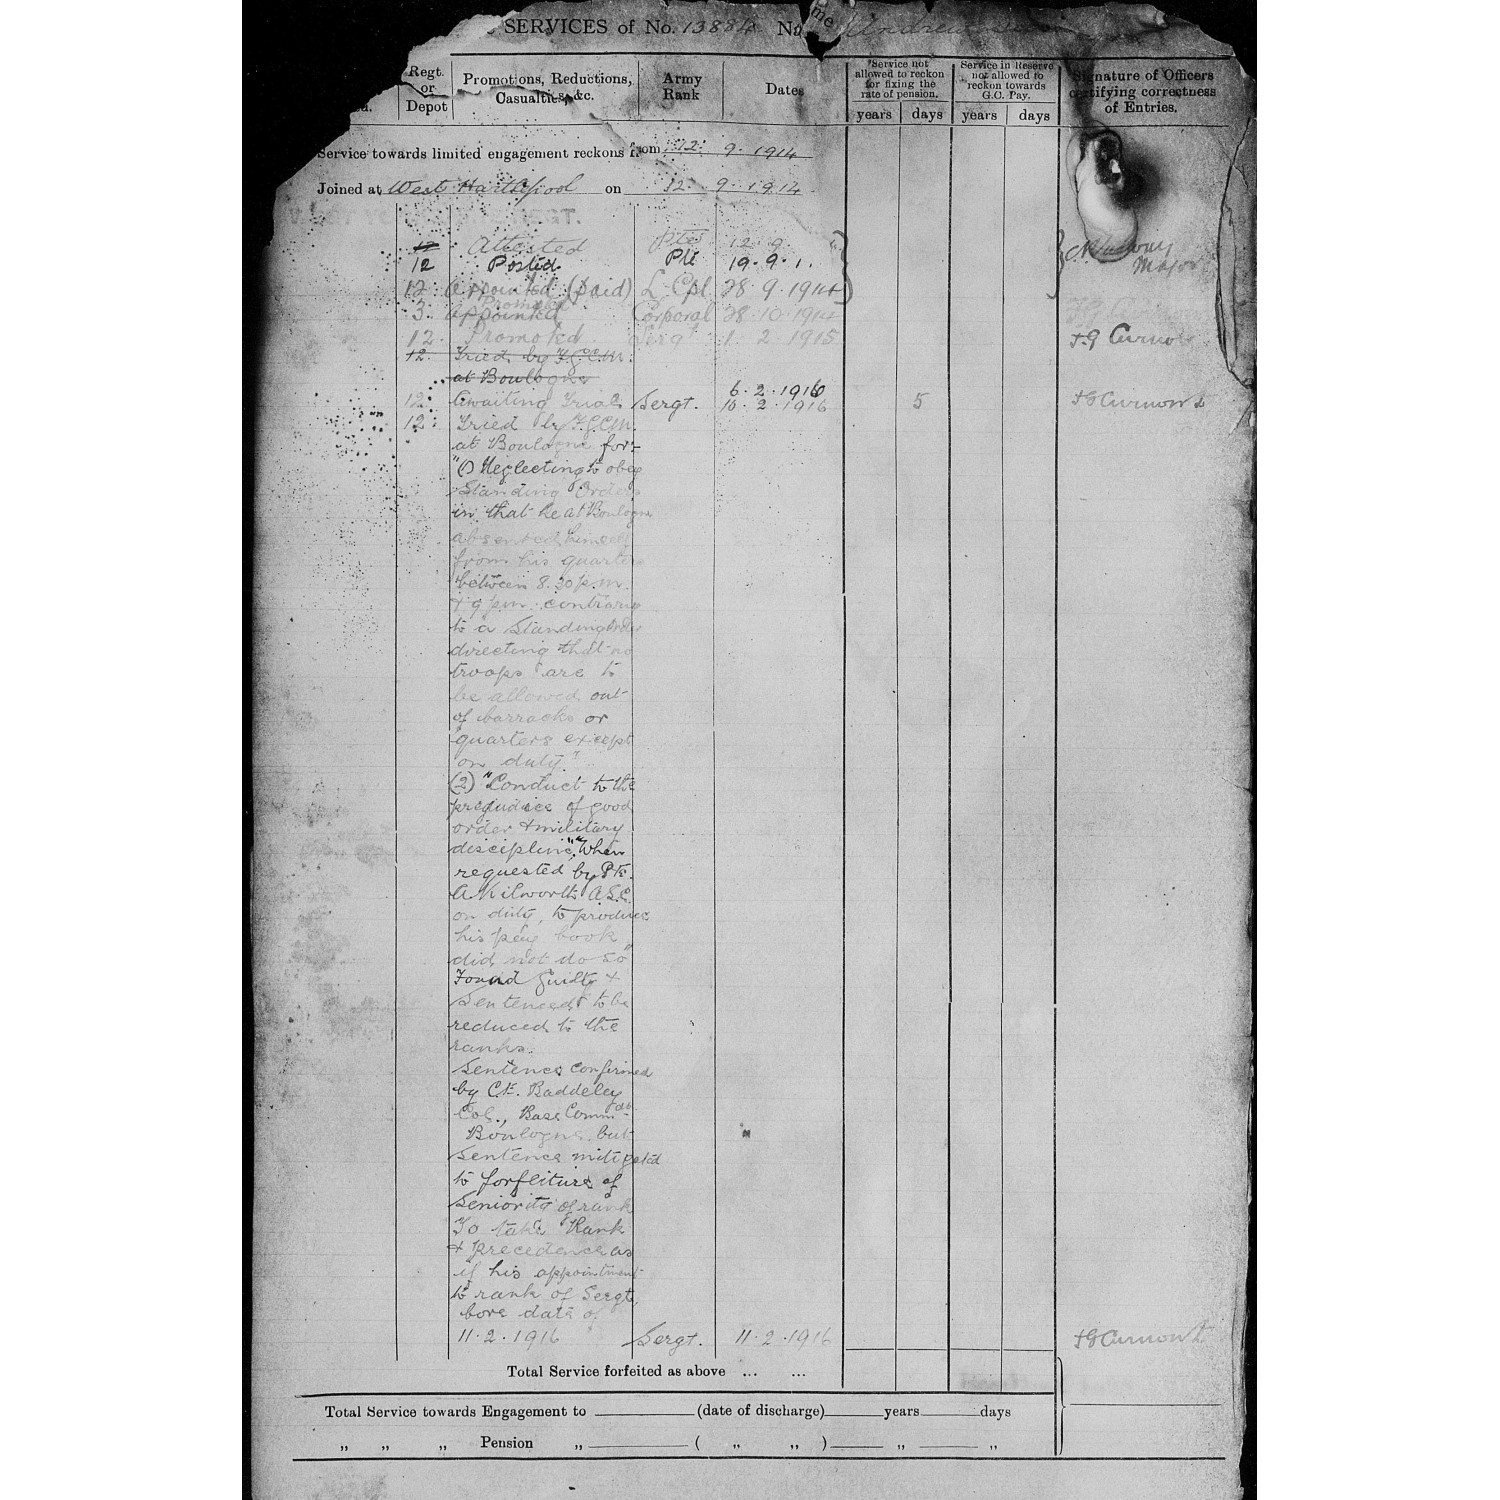 SERVICES of No. 13884 Name
Regt. or Depot
Promotions, Reductions, Casualties, &c.
Army Rank
Dates
Service not allowed to reckon for fixing the rate of pension.
Service in Reserve not allowed to reckon towards G.C. Pay.
Signature of Officers certifying correctness of Entries.
years days years days
Service towards limited engagement reckons from 12. 9. 1914
Joined at West Hartlepool on 12. 9. 1914
12 Attested Pte 12. 9.
12 Posted Pte 19. 9. 1. Major
12 Appointed (paid) L. Cpl 28. 9. 1914
Promoted
3. appointed Corporal 28. 10. 1914
12. Promoted Sergt 1. 2. 1915 F.G Curnow
12. Tried by F.G.C.M.
at Boulogne
6. 2. 1916
12. Awaiting Trial Sergt. 10. 2. 1916 5 F G Curnow Lt
12. Tried by F.G.C.M.
at Boulogne for:-
"(1) Neglecting to obey
Standing Orders
in that he at Boulogne
absented himself
from his quarters
between 8.30 p.m.
& 9 pm. contrary
to a Standing Order
directing that no
troops are to
be allowed out
of barracks or
quarters except
on duty."
(2) "Conduct to the
prejudice of good
order & military
discipline" "When
requested by Pte.
A Kilworth A.S.C.
on duty, to produce
his pay book
did not do so"
Found Guilty &
Sentenced to be
reduced to the
ranks.
Sentence confirmed
by C.E. Baddeley
Col., Base Commdt
Boulogne but
Sentence mitigated
to forfeiture of
Seniority of rank
To take Rank
& precedence as
if his appointment
to rank of Sergt.
bore date of
11. 2. 1916 Sergt. 11. 2. 1916 F G Curnow Lt
Total Service forfeited as above ... ...
Total Service towards Engagement to (date of discharge) years days
„ „ „ Pension „ ( „ „ ) „ „